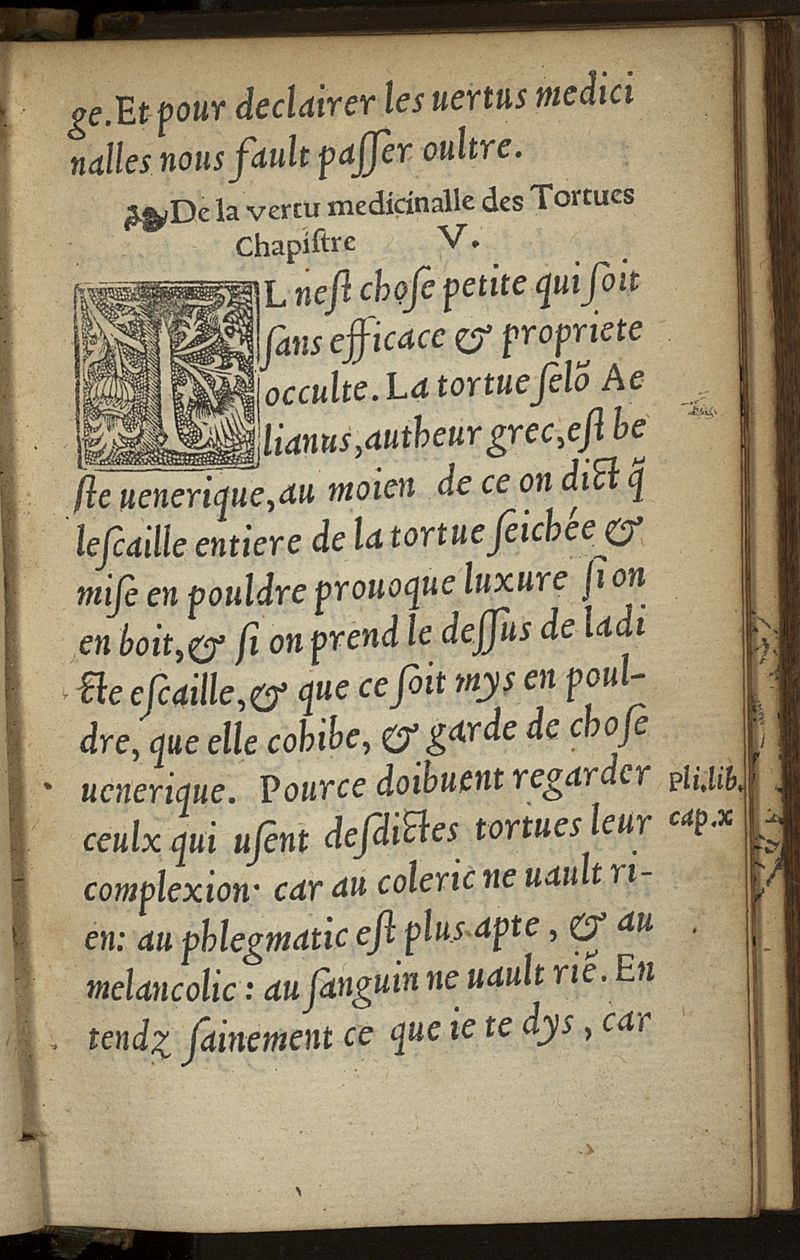 ge. Et pour declairer les uertus medici
nalles nous fault paſſer oultre.
De la vertu medicinalle des Tortues
Chapiſtre V.
IL neſt choſe petite qui ſoit
ſans efficace & propriete
occulte. La tortue ſelõ Ae
lianus, autheur grec, eſt be
ſte uenerique, au moien de ce on dict q̃
leſcaille entiere de la tortue ſeichée &
miſe en pouldre prouoque luxure ſi on
en boit, & ſi on prend le deſſus de ladi
cte eſcaille, & que ce ſoit mys en poul-
dre, que elle cohibe, & garde de choſe
uenerique. Pource doibuent regarder
ceulx qui uſent deſdictes tortues leur
complexion· car au coleric ne uault ri-
en: au phlegmatic eſt plus apte, & au
melancolic: au ſanguin ne uault riẽ. En
tendz ſainement ce que ie te dys, car
pli.lib.
cap.x